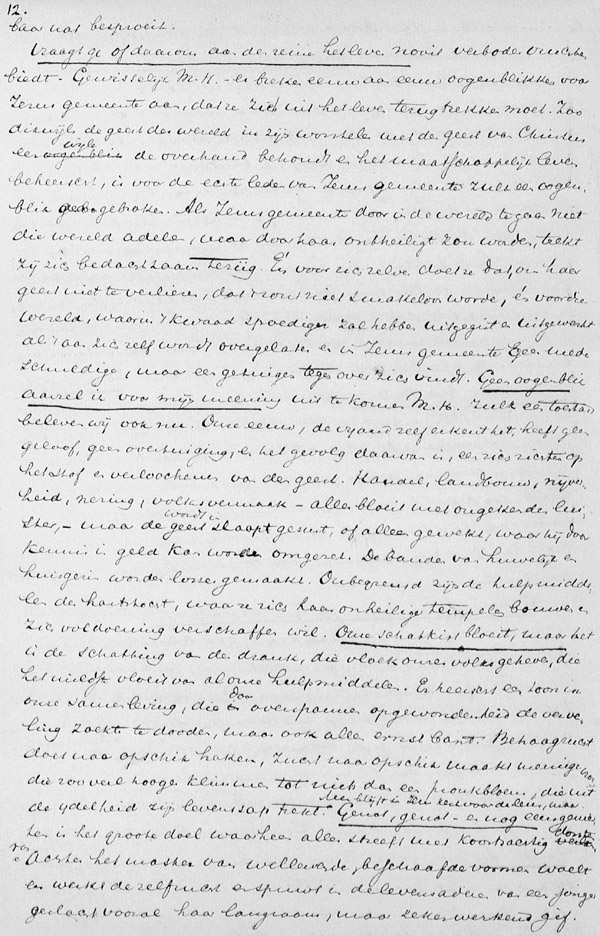 12.
baar nat besproeit.
Vraagt ge of daarom aan de reine het leven nooit verboden vrucht
biedt. Gewisselijk M. H. - er breken eeuw aan eeuw oogenblikken voor
Jezus gemeente aan, dat ze zich uit het leven terugtrekken moet. Zoo
dikwijls de geest der wereld in zijn worstelen met de geest van Christus
een wijle de overhand behoudt en het maatschappelijk leven
beheerscht, is voor de echte leden van Jezus gemeente zulk een oogen-
blik aangebroken. Als Jezus gemeente door in de wereld te gaan niet
die wereld adelen, maar door haar ontheiligt zou worden, trekt
zij zich bedachtzaam terug. En voor zich zelve doet ze dat, om haar
geest niet te verliezen, dat 't zout niet smakeloos worde, én voor die
wereld, waarin 't kwaad spoediger zal hebben uitgegist en uitgewerkt
als 't aan zich zelf wordt overgelaten en in Jezus gemeente geen mede
schuldige, maar een getuige tegenover zich vindt. Geen oogenblik
aarzel ik voor mijn meening uit te komen M. H. Zulk een toestand
beleven wij ook nu. Onze eeuw, de vijand zelf erkent het, heeft geen
geloof, geen overtuiging, en het gevolg daarvan is, een zich richten op
het stof en verloochenen van den geest. Handel, landbouw, nijver-
heid, nering, volksvermaak - alles bloeit met ongekenden lui-
ster, - maar de geest wordt in slaap gesust, of alleen gewekt, waar hij door
kennis in geld kan worden omgezet. De banden van huwelijk en
huisgezin worden losser gemaakt. Onbegrensd zijn de hulpmidde-
len der hartstocht, waar ze zich haar onheilige tempelen bouwen en
zich voldoening verschaffen wil. Onze schatkist bloeit, maar het
is de schatting van den drank, die vloek onzer volks geheven, die
het mildst vloeit van al onze hulpmiddelen. Er heerscht een toon in
onze samenleving, die door overspannen opgewondenheid de verve-
ling zoekt te dooden, maar ook alle ernst bant. Behaagzucht
doet naar opschik haken, zucht naar opschik maakt menige
die zoo veel hooger klimmen tot niets dan een pronkbloem, die uit
de ijdelheid zijn levenssap trekt. Genot, genot - en nog eens genie-
ten is het groote doel waarheen alles streeft met koortsachtig
Achter het masker van wellevende, beschaafde vormen woelt
en werkt de zelfzucht en spuwt in de levensaderen van een jonger
geslacht vooral haar langzaam, maar zeker werkend gif.